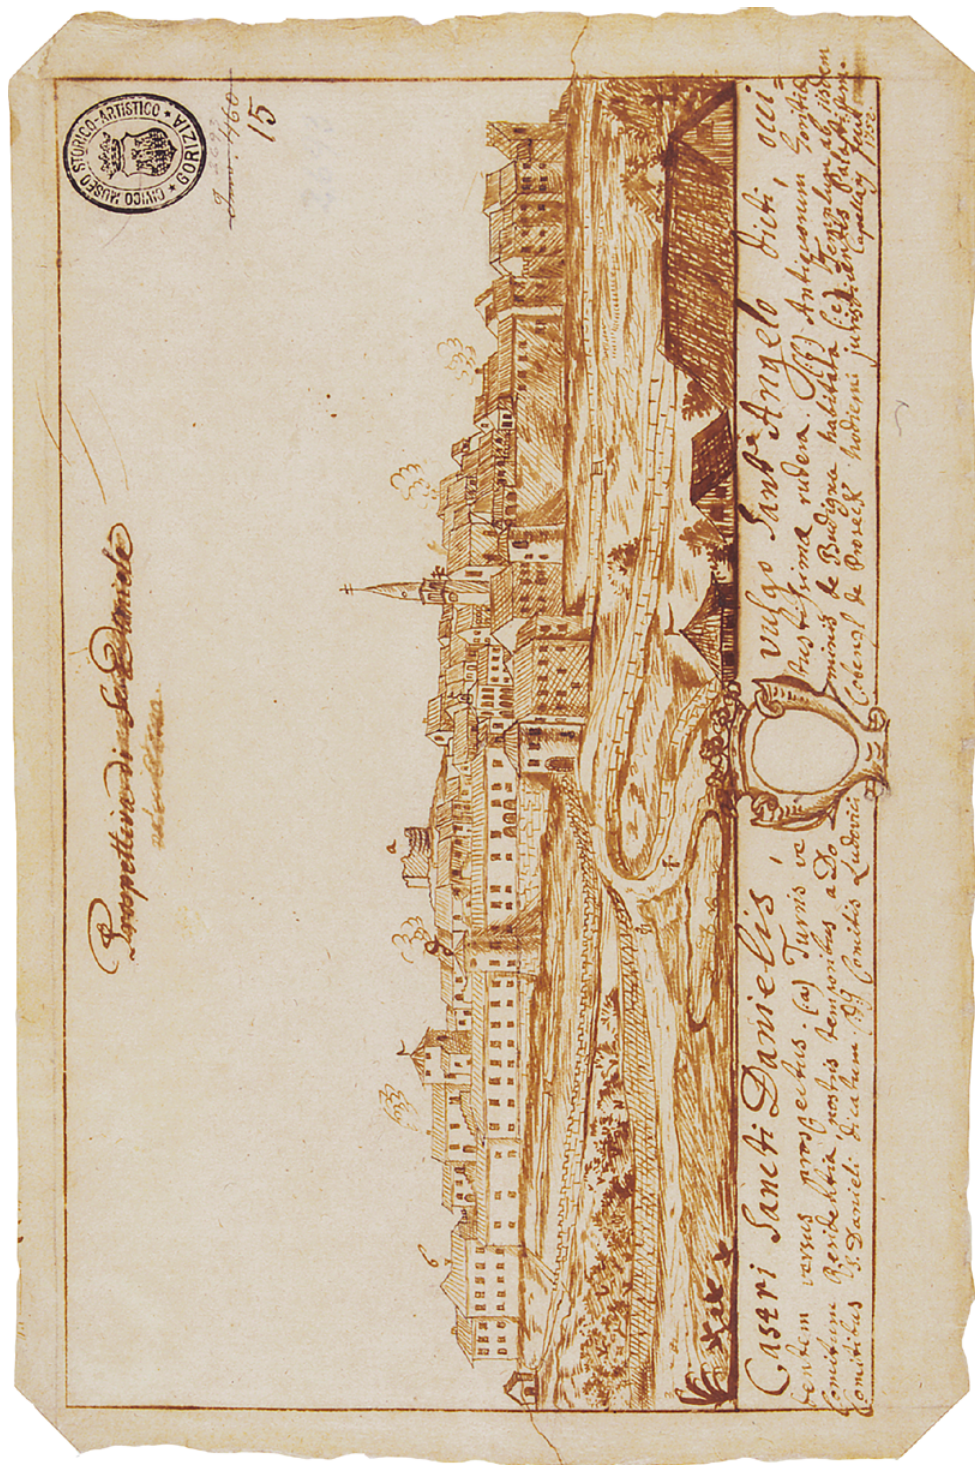 CIVICO MUSEO STORICO-ARTISTICO * GORIZIA *
15
Prospettiva di San Daniele
a
b
c
Castri Sancti Danielis, vulgo Sant Angelo dicti, oui=
dentem versus prospectus. (a) Turris ve tustissima rudera. (b) Antiquorum Goritiæ
Comitum Residentia, nostris temporibus a Do minis de Budigna habitata (c) Templum ab iisdem
Comitibus S. Danieli dicatum. Comitis Ludovici Cobenzl de Prosek hodierni
Capelleris fecit
1752.